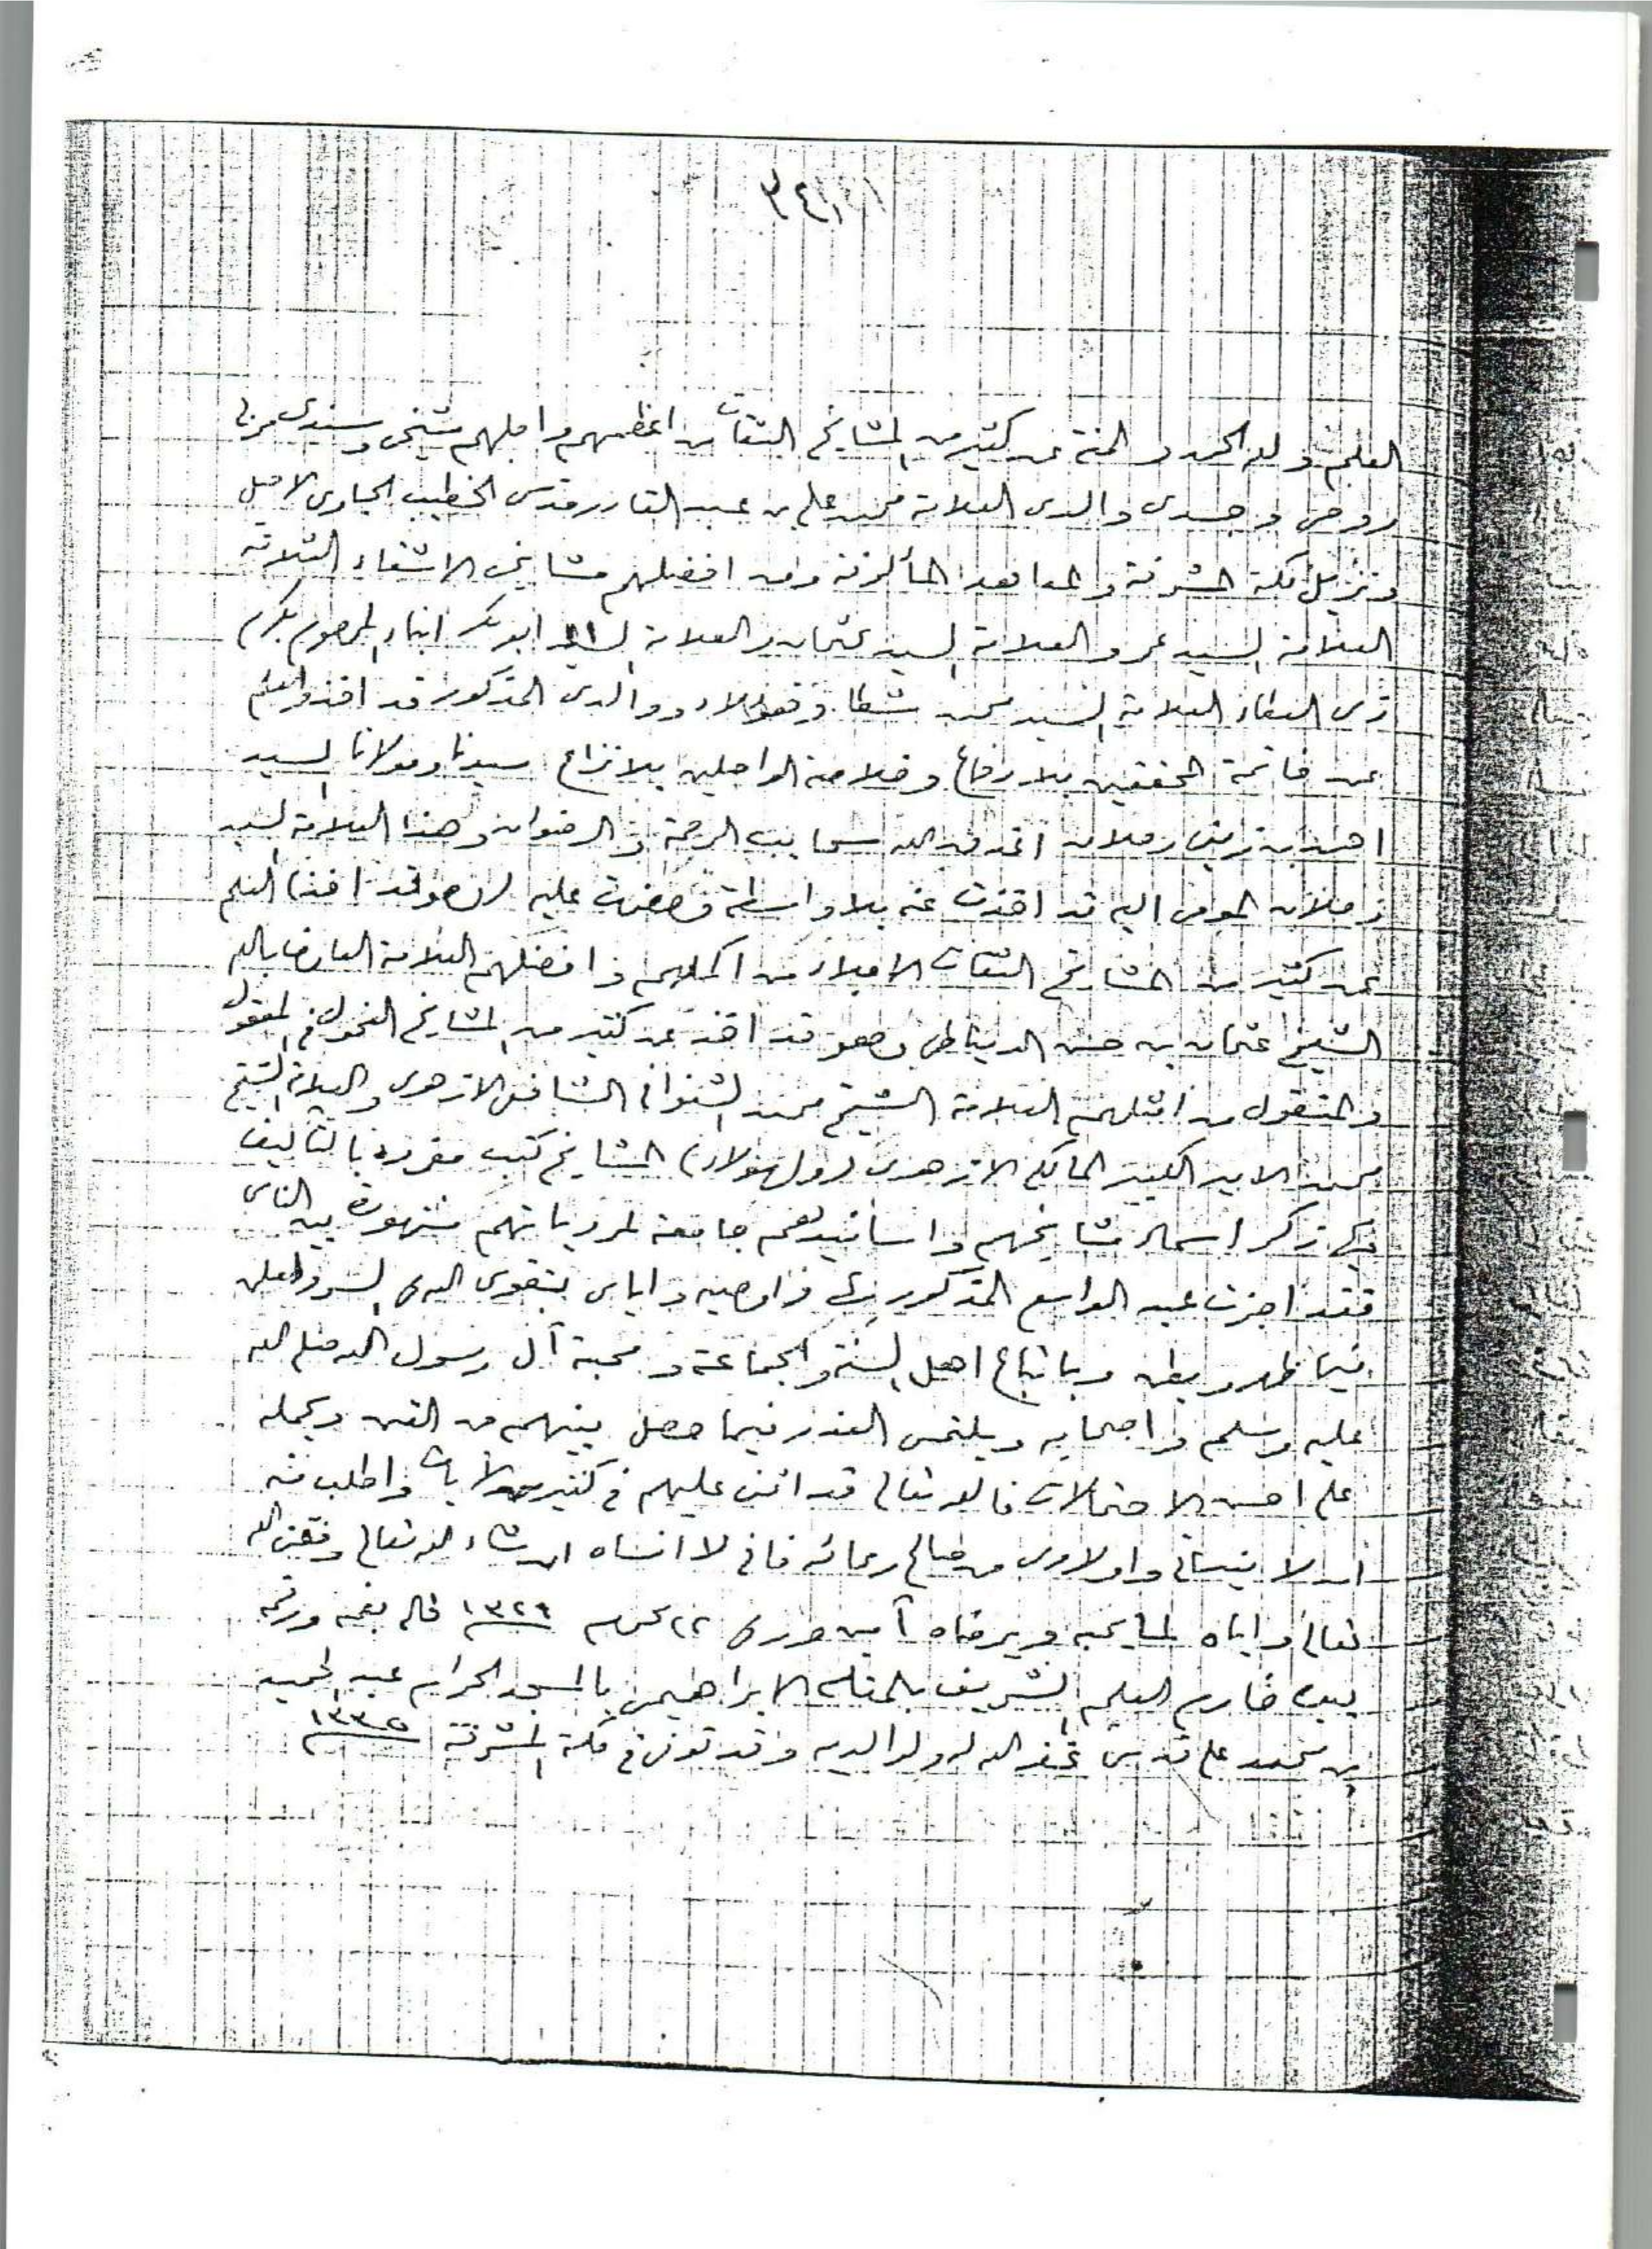 ٣٤١
العلم ولله الحمد والمنة عن كثير من المشايخ الثقات من اعظمهم واجلهم شيخي وسندي مربي
روحي وجسدي والدي العلامة محمد علي بن عبد القادر قدس الخطيب الجاوي الاصل
ونزيل مكة المشرفة والمعاهد المألوفة ومن افضلهم مشايخي الاشقاء الثلاثة
العلامة السيد عمر والعلامة السيد عثمان والعلامة السيد ابو بكر ابناء المرحوم بكرم
ذي العطاء العلامة السيد محمد شطا وهؤلاء ووالدي المذكور قد اخذوا العلم
عن خاتمة المحققين بلا دفاع وخلاصة الواصلين بلا نزاع سيدنا ومولانا السيد
احمد بن زيني دحلان اغدق الله سحايب الرحمة والرضوان وهذا العلامة السيد
دحلان المومى اليه قد اخذت عنه بلا واسطة وحضرت عليه وهو قد اخذ العلم
عن كثير من المشايخ الثقات الاجلاء من اكملهم وافضلهم العلامة العارف بالله
الشيخ عثمان بن حسن الدمياطي وهو قد اخذ عن كثير من المشايخ الفحول في المعقول
والمنقول من امثلهم العلامة الشيخ محمد الشنواني الشافعي الازهري والعلامة الشيخ
محمد الامير الكبير المالكي الازهري ولهؤلاء المشايخ كتب مفردة بالتأليف
في ذكر اسماء مشايخهم واسانيدهم جامعة لمروياتهم مشهورة بين الناس
فقد اجزت عبد الواسع المذكور بها واوصيه واياي بتقوى الله في السر والعلن
فيما ظهر وبطن وباتباع اهل السنة والجماعة ومحبة آل رسول الله صلى الله
عليه وسلم واصحابه ويلتمس العذر فيما حصل بينهم من الفتن ويحمله
على احسن الاحتمالات فالله تعالى قد اثنى عليهم في كثير من الآيات واطلب منه
ان لا ينساني واولادي من صالح دعائه فاني لا انساه ان شاء الله تعالى وفقني الله
تعالى واياه لما يحبه ويرضاه آمين ٢٢ محرم ١٣٢٩ قاله بفمه ورقمه
بيده خادم العلم الشريف بالمقام الابراهيمي بالمسجد الحرام عبد الحميد
بن محمد علي قدس غفر الله له ولوالديه وقد توفى في مكة المشرفة ١٣٣٥